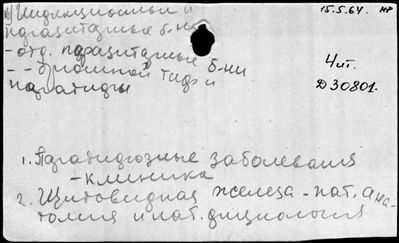 б) Инфекционные и
паразитарные б-ни
- отд. паразитарные б-ни
- - брюшной тиф и
паратифы
15.5.64. НР
Чит.
Д30801.
1. Паратифозные заболевания
- клиника
2. Щитовидная железа - пат. ана-
томия и пат. физиология